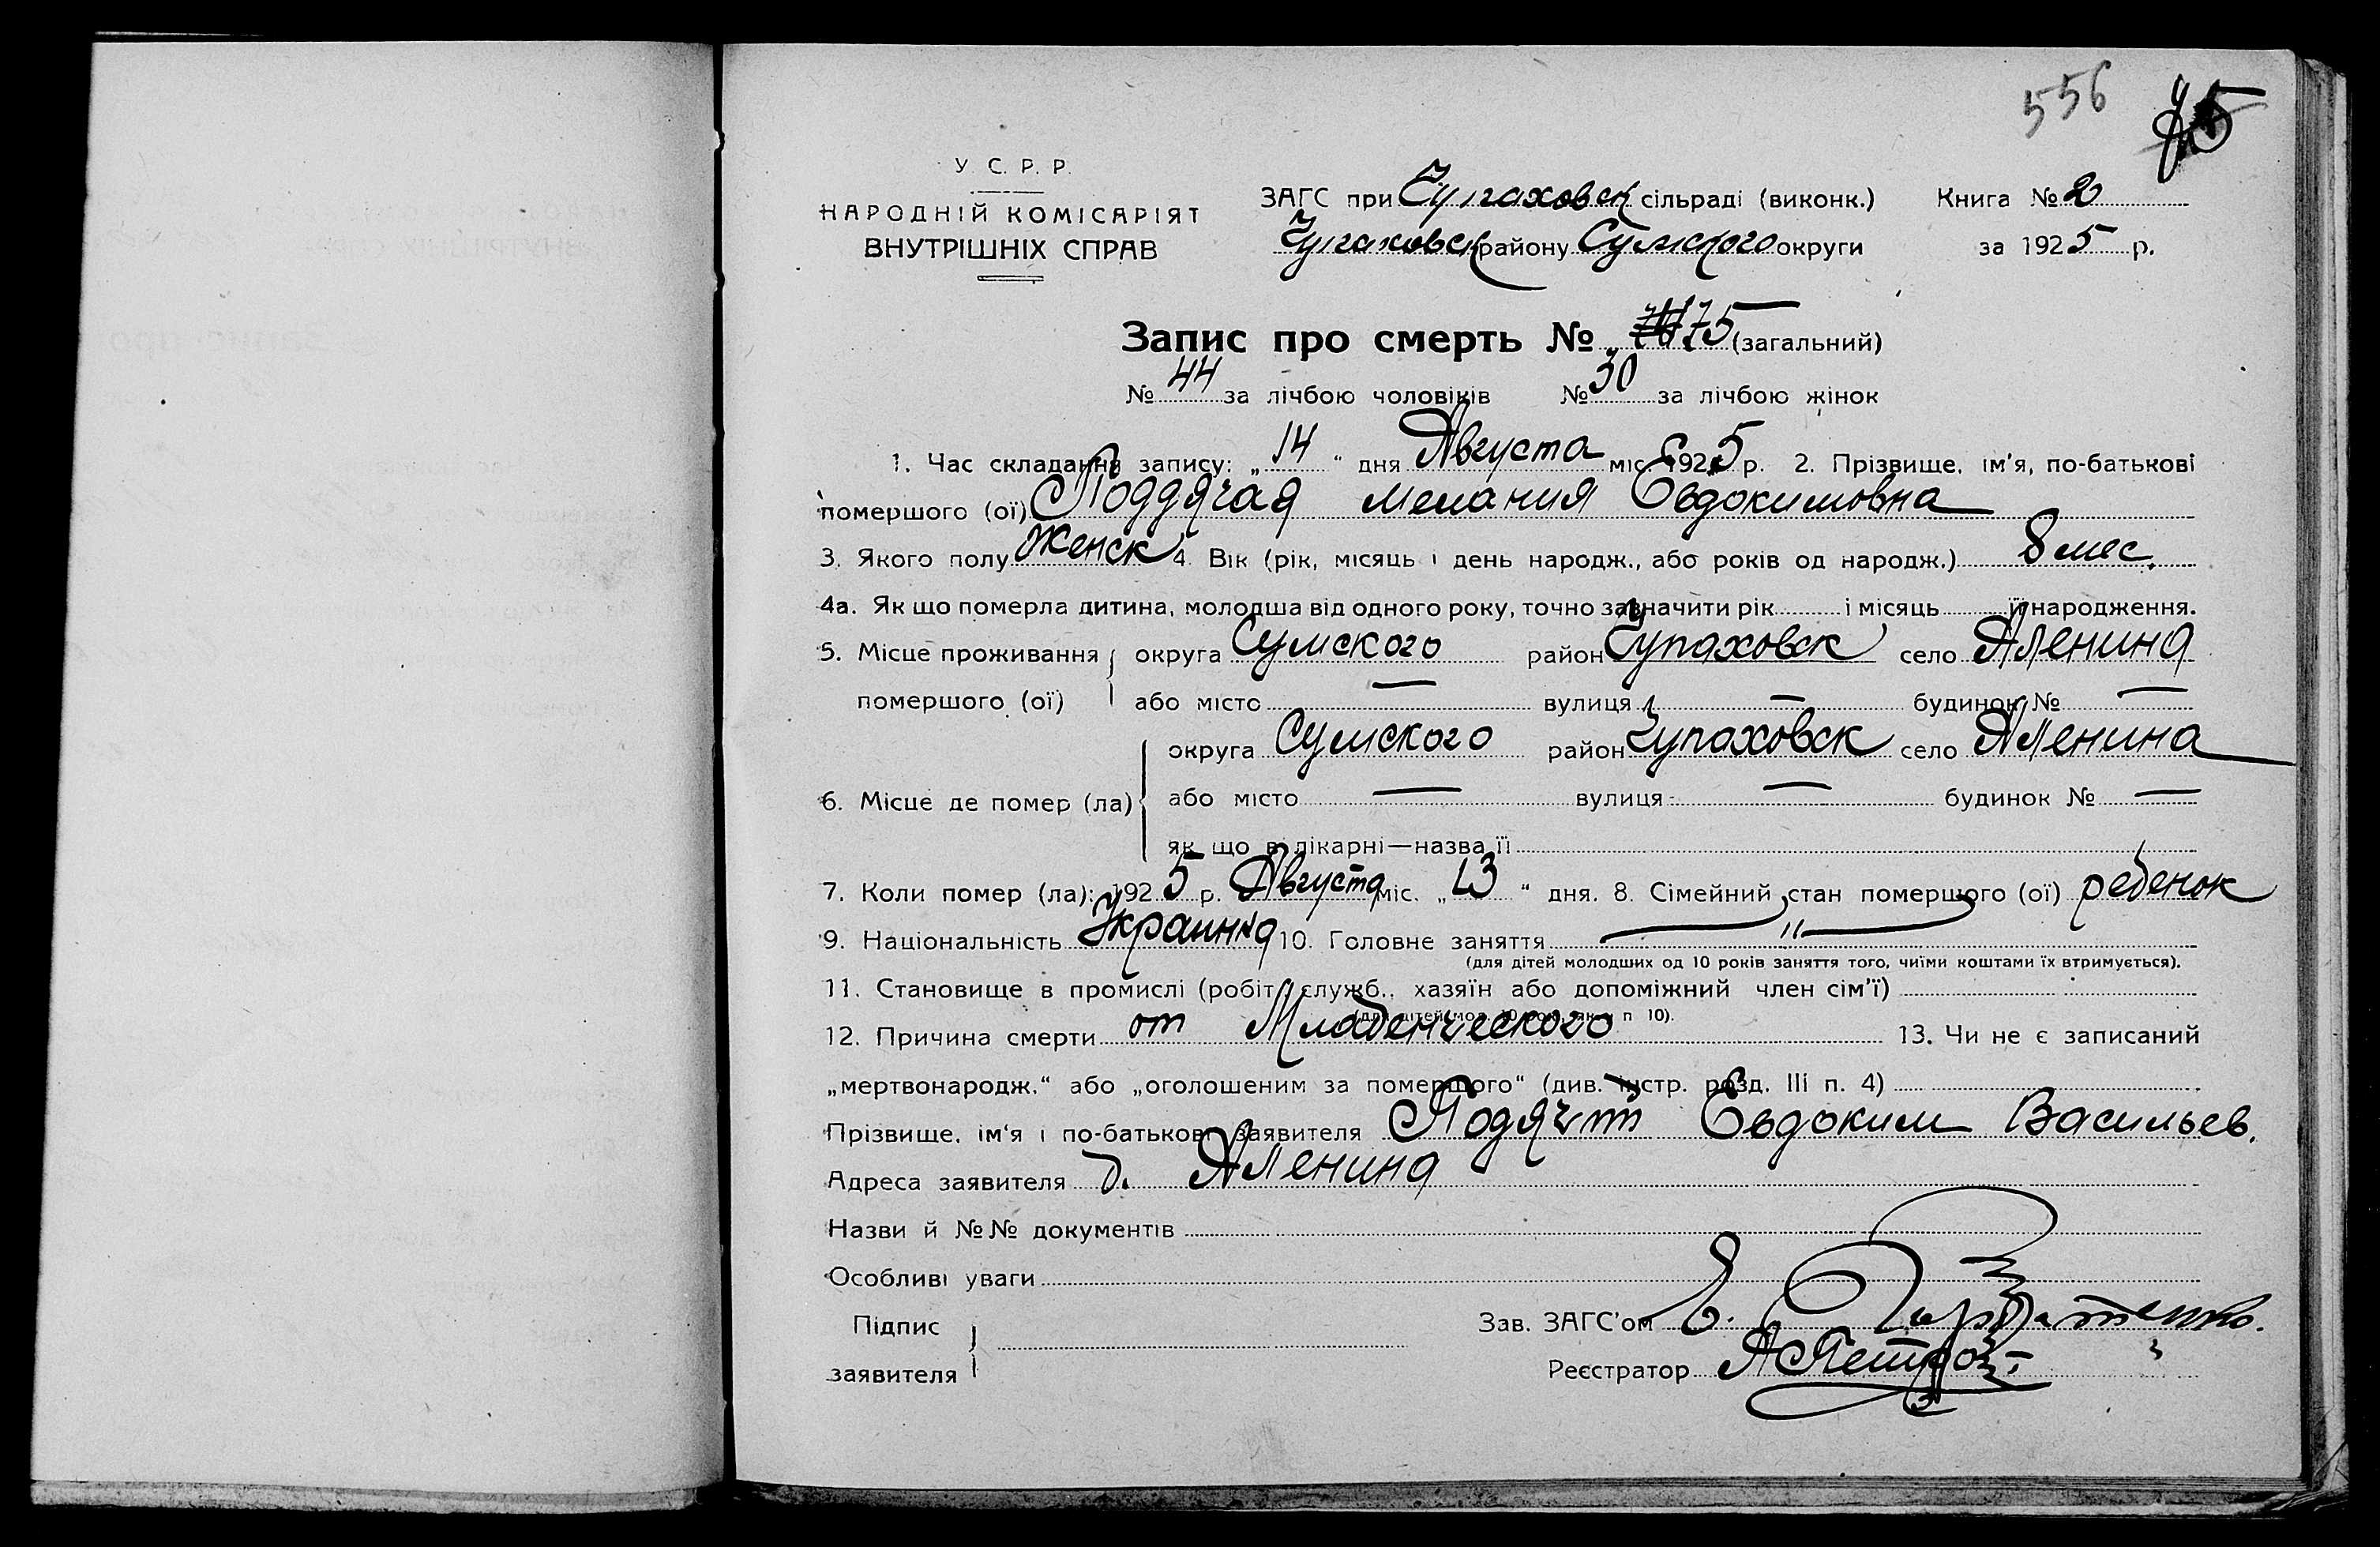 556 75
У. С. Р. Р.
НАРОДНІЙ КОМІСАРІЯТ
ВНУТРІШНІХ СПРАВ
ЗАГС при Чупаховск сільраді (виконк.) Книга № 2
Чупаховск району Сумского округи за 1925 р.
Запис про смерть № 75 (загальний)
№ 44 за лічбою чоловіків № 30 за лічбою жінок
1. Час складання запису: „14“ дня Августа міс. 1925 р. 2. Прізвище, ім'я, по-батькові
помершого (ої) Поддячая Мелания Евдокимовна
3. Якого полу Женск 4. Вік (рік, місяць і день народж., або років од народж.) 8 мес.
4а. Як що померла дитина, молодша від одного року, точно зазначити рік і місяць її народження.
5. Місце проживання округа Сумского район Чупаховск село Аленина
помершого (ої) або місто — вулиця — будинок № —
округа Сумского район Чупаховск село Аленина
6. Місце де помер (ла) або місто — вулиця — будинок № —
як що в лікарні—назва її
7. Коли помер (ла): 1925 р. Августа міс. „13“ дня. 8. Сімейний стан помершого (ої) ребенок
9. Національність 10. Головне заняття — " —
(для дітей молодших од 10 років заняття того, чиїми коштами їх втримується).
11. Становище в промислі (робіт., служб., хазяїн або допоміжний член сім'ї)
(для дітей мол. 10 рок. як у п 10).
12. Причина смерти от Младенческого 13. Чи не є записаний
„мертвонародж.“ або „оголошеним за помершого“ (див. інстр. розд. III п. 4)
Прізвище, ім'я і по-батькові заявителя Евдоким Васильев.
Адреса заявителя д. Аленина
Назви й №№ документів
Особливі уваги
Підпис
заявителя
Зав. ЗАГС'ом
Реєстратор